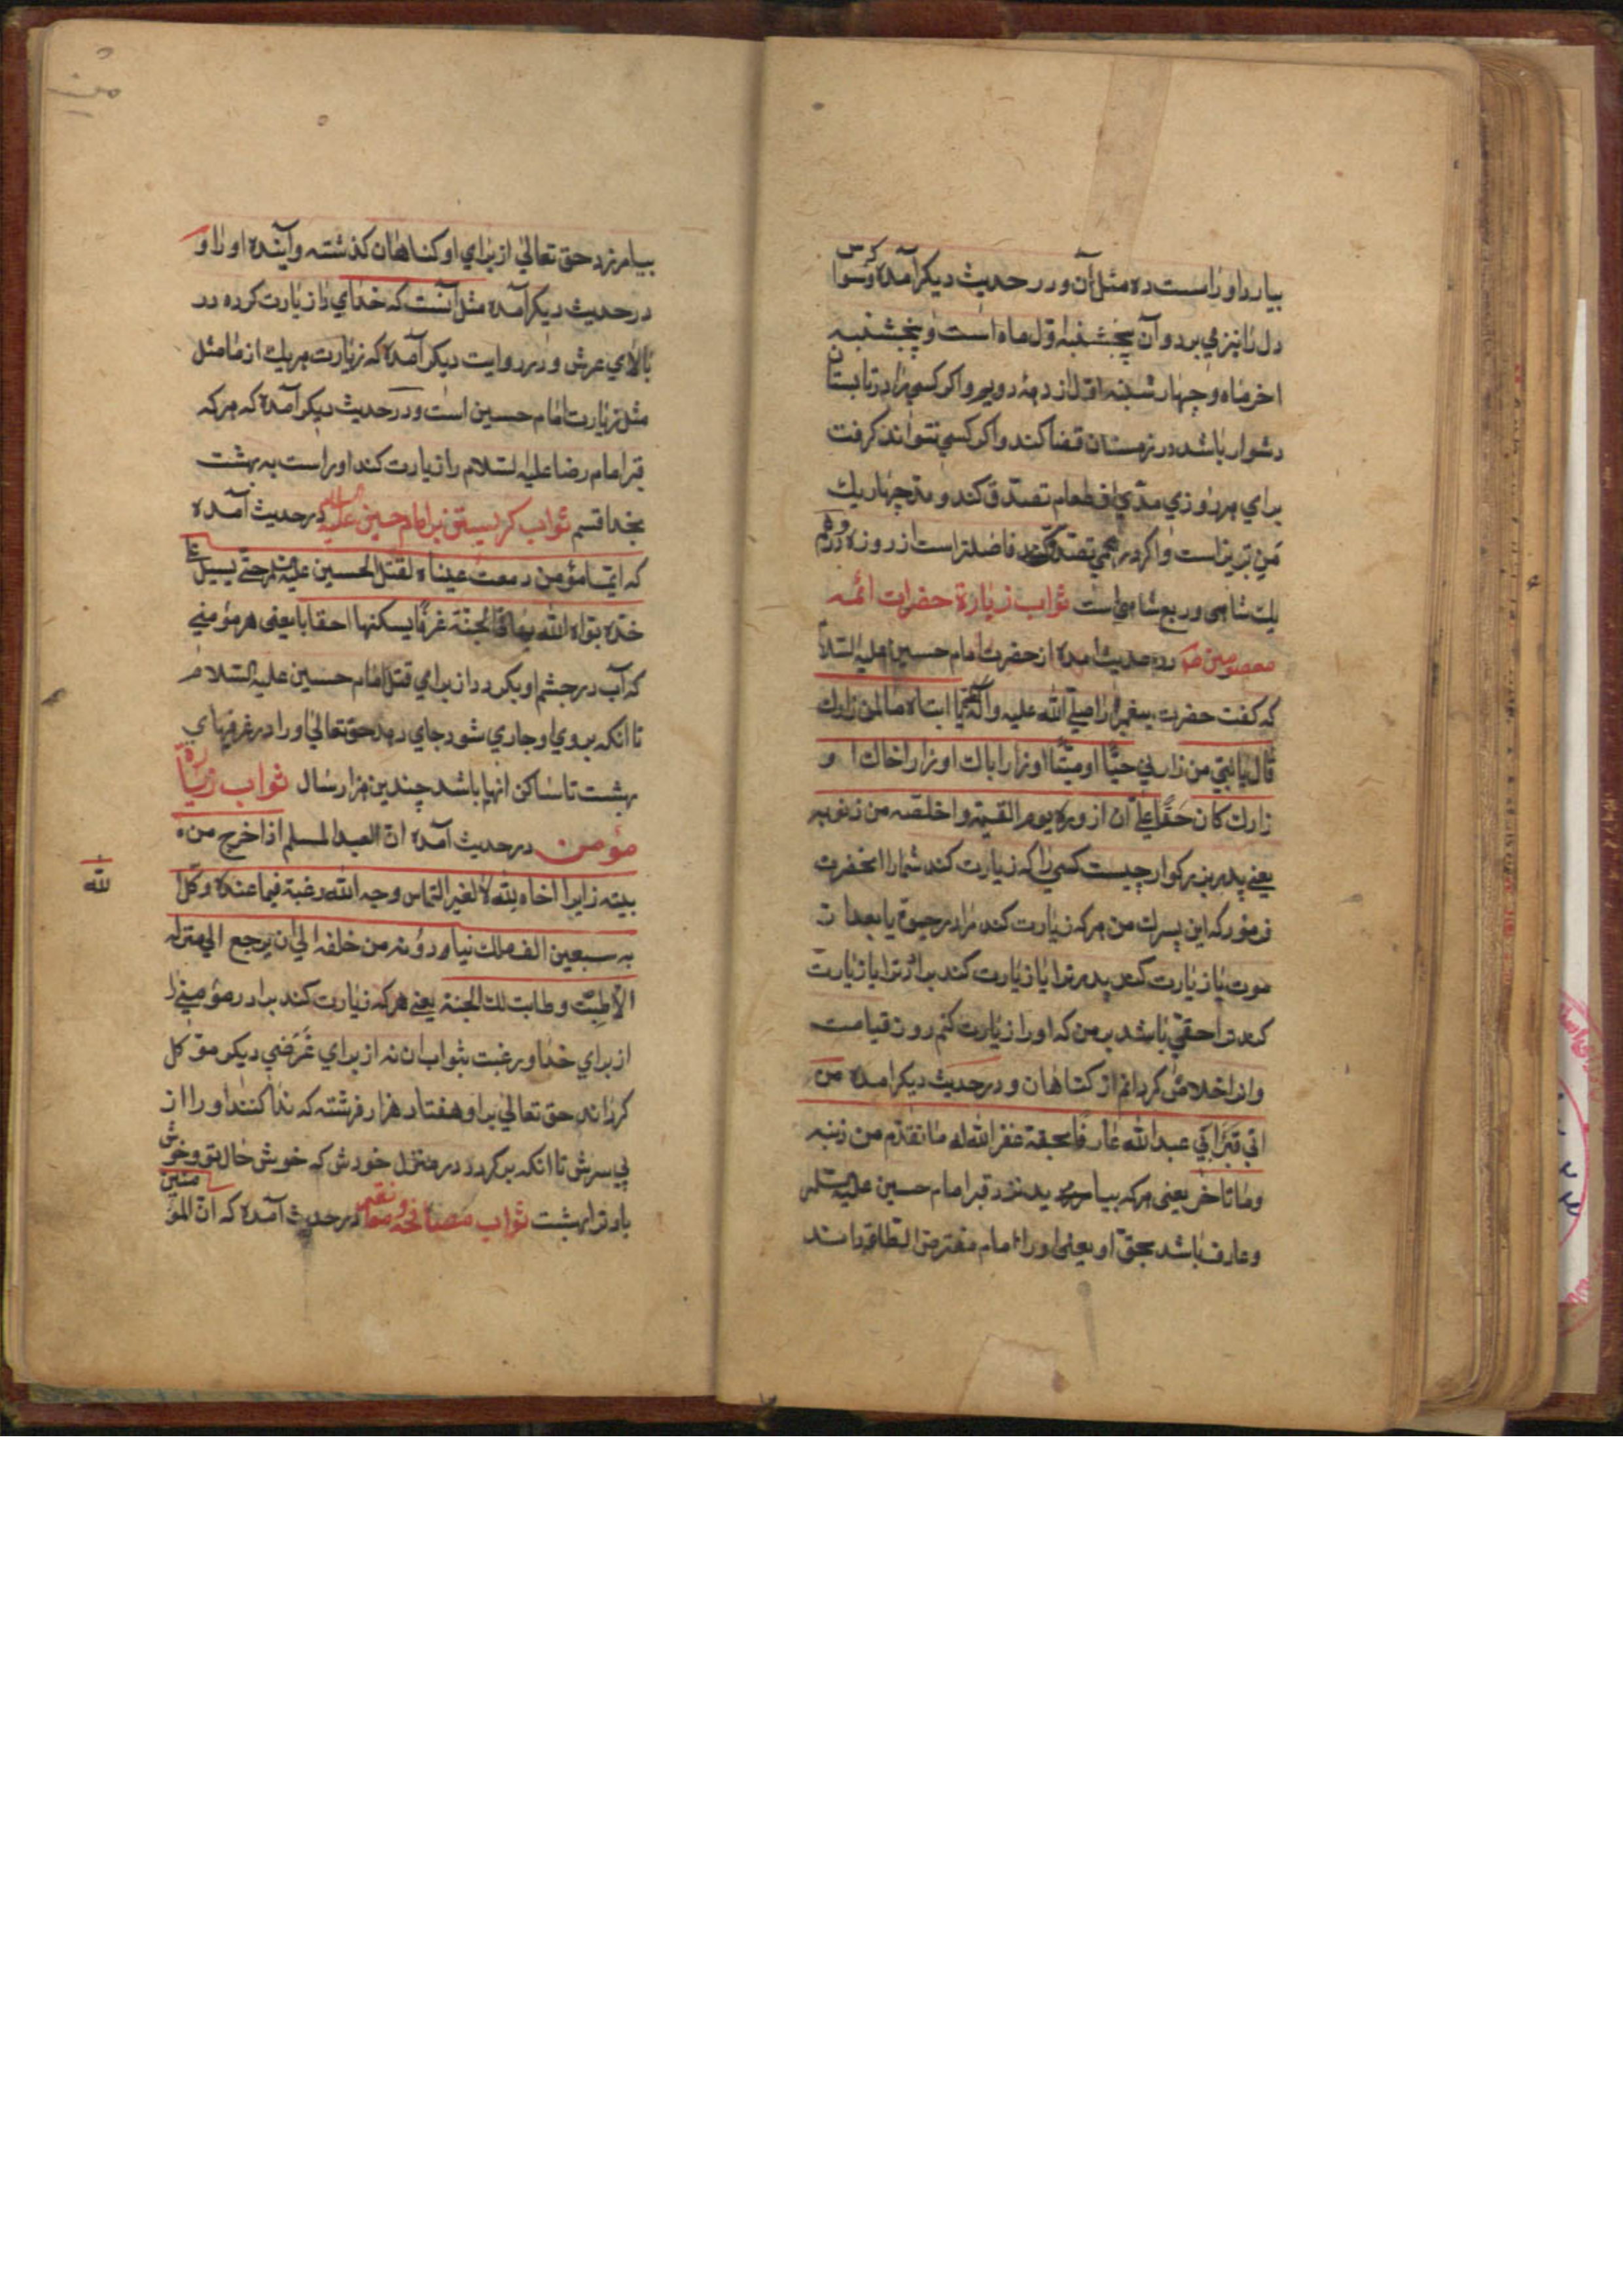 بیارد او را است ده مثل آن و در حدیث دیکر آمده که وسواس
دل را نیز می برد و آن پنجشنبه اول ماه است و پنجشنبه
اخر ماه و چهارشنبه اول از دهه دویم و اکر کسی را در تابستان
دشوار باشد در زمستان قضا کند و اکر کسی نتواند کرفت
برای هر روزی مدی از طعام تصدق کند و مد چهار یك
من تبریز است و اکر درهمی تصدق کند فاضلتر است از روزه و درهم
یك شاهی و ربع شاهی است ثواب زیارة حضرات ائمه
معصومین در حدیث امده از حضرت امام حسین علیه السلام
که کفت حضرت پیغمبر را صلی الله علیه وآله یا ابتاه ما لمن زارك
قال یا بنی من زارنی حیّا او میتّا او زار اباك او زار اخاك او
زارك کان حقّا علیّ ان ازوره یوم القیمة و اخلصه من ذنوبه
یعنی پدر بزرکوار چیست کسی را که زیارت کند شما را انحضرت
فرمود که این پسرك من هرکه زیارت کند مرا در حیوة یا بعد از
موت یا زیارت کند پدر ترا یا زیارت کند برادر ترا یا زیارت
کند ترا حقی باشد بر من که او را زیارت کنم روز قیامت
و او را خلاص کردانم از کناهان و در حدیث دیکر امده من
اتی قبر ابی عبد الله عارفا بحقه غفر الله له ما تقدم من ذنبه
و ما تاخر یعنی هرکه بیاید نزد قبر امام حسین علیه السلام
و عارف باشد بحق او یعنی او را امام مفترض الطاعة داند
بیامرزد حق تعالی از برای او کناهان کذشته و آینده او را و
در حدیث دیکر آمده مثل آنست که خدای را زیارت کرده در
بالای عرش و در روایت دیکر آمده که زیارت هریك از ما مثل
مثل زیارت امام حسین است و در حدیث دیکر آمده که هرکه
قبر امام رضا علیه السلام را زیارت کند او راست به بهشت
بخدا قسم ثواب کریستن بر امام حسین علیه السلام در حدیث آمده
که ایما مؤمن دمعت عیناه لقتل الحسین علیه السلام حتی یسیل علی
خده بواه الله بها فی الجنة غرفا یسکنها احقابا یعنی هر مؤمنی
که آب در چشم او بکردد از برای قتل امام حسین علیه السلام
تا انکه بروی او جاری شود جای دهد حق تعالی او را در غرفهای
بهشت تا ساکن انها باشد چندین هزار سال ثواب زیارة
مؤمن در حدیث آمده ان العبد المسلم اذا خرج من
بیته زایرا اخاه لله لا لغیر التماس وجه الله رغبة فیما عنده وکل
لله
به سبعین الف ملك ینادونه من خلفه الی ان یرجع الی منزله
الا طبت و طابت لك الجنة یعنی هرکه زیارت کند برادر مؤمنی را
از برای خدا و رغبت بثواب ان نه از برای غرضی دیکر موکل
کرداند حق تعالی براو هفتاد هزار فرشته که ندا کنند او را از
پی سرش تا انکه برکردد در منزل خودش که خوش حال تو و خوش
باد ترا بهشت ثواب مصافحه و در حدیث آمده که ان المؤمنین